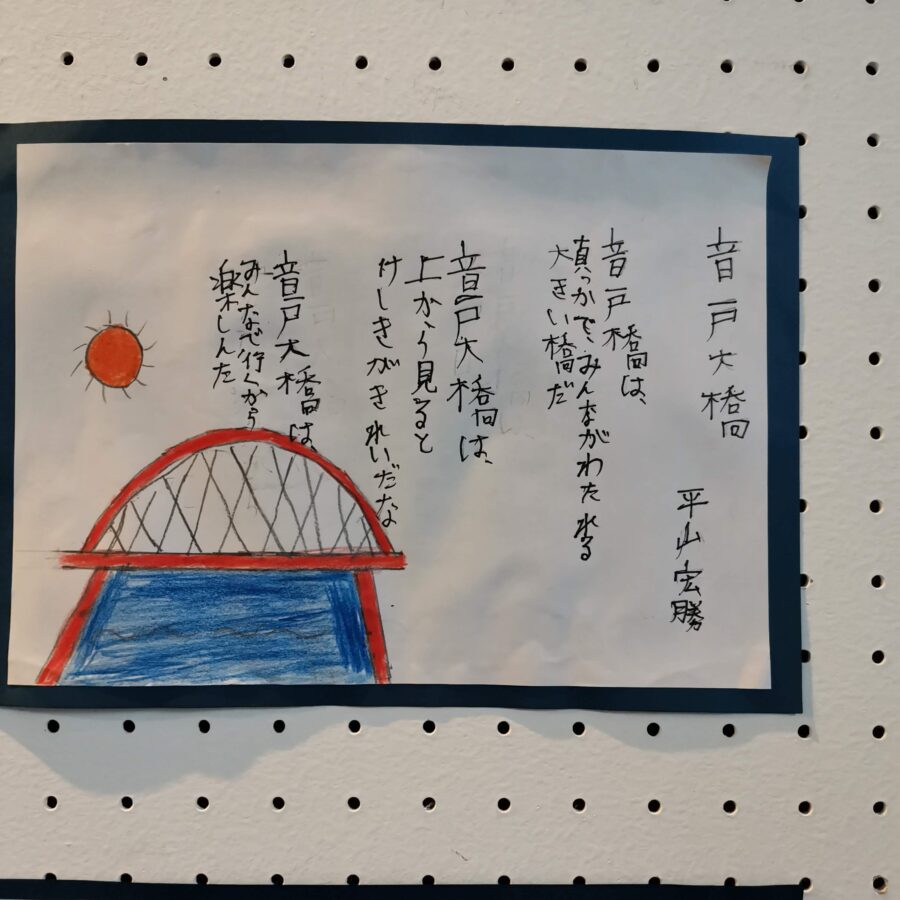 音戸大橋
平山宏勝
音戸橋は、
真っかで、みんながわたれる
大きい橋だ
音戸大橋は、
上から見ると
けしきがきれいだな
音戸大橋は、
みんなで行くから
楽しんた